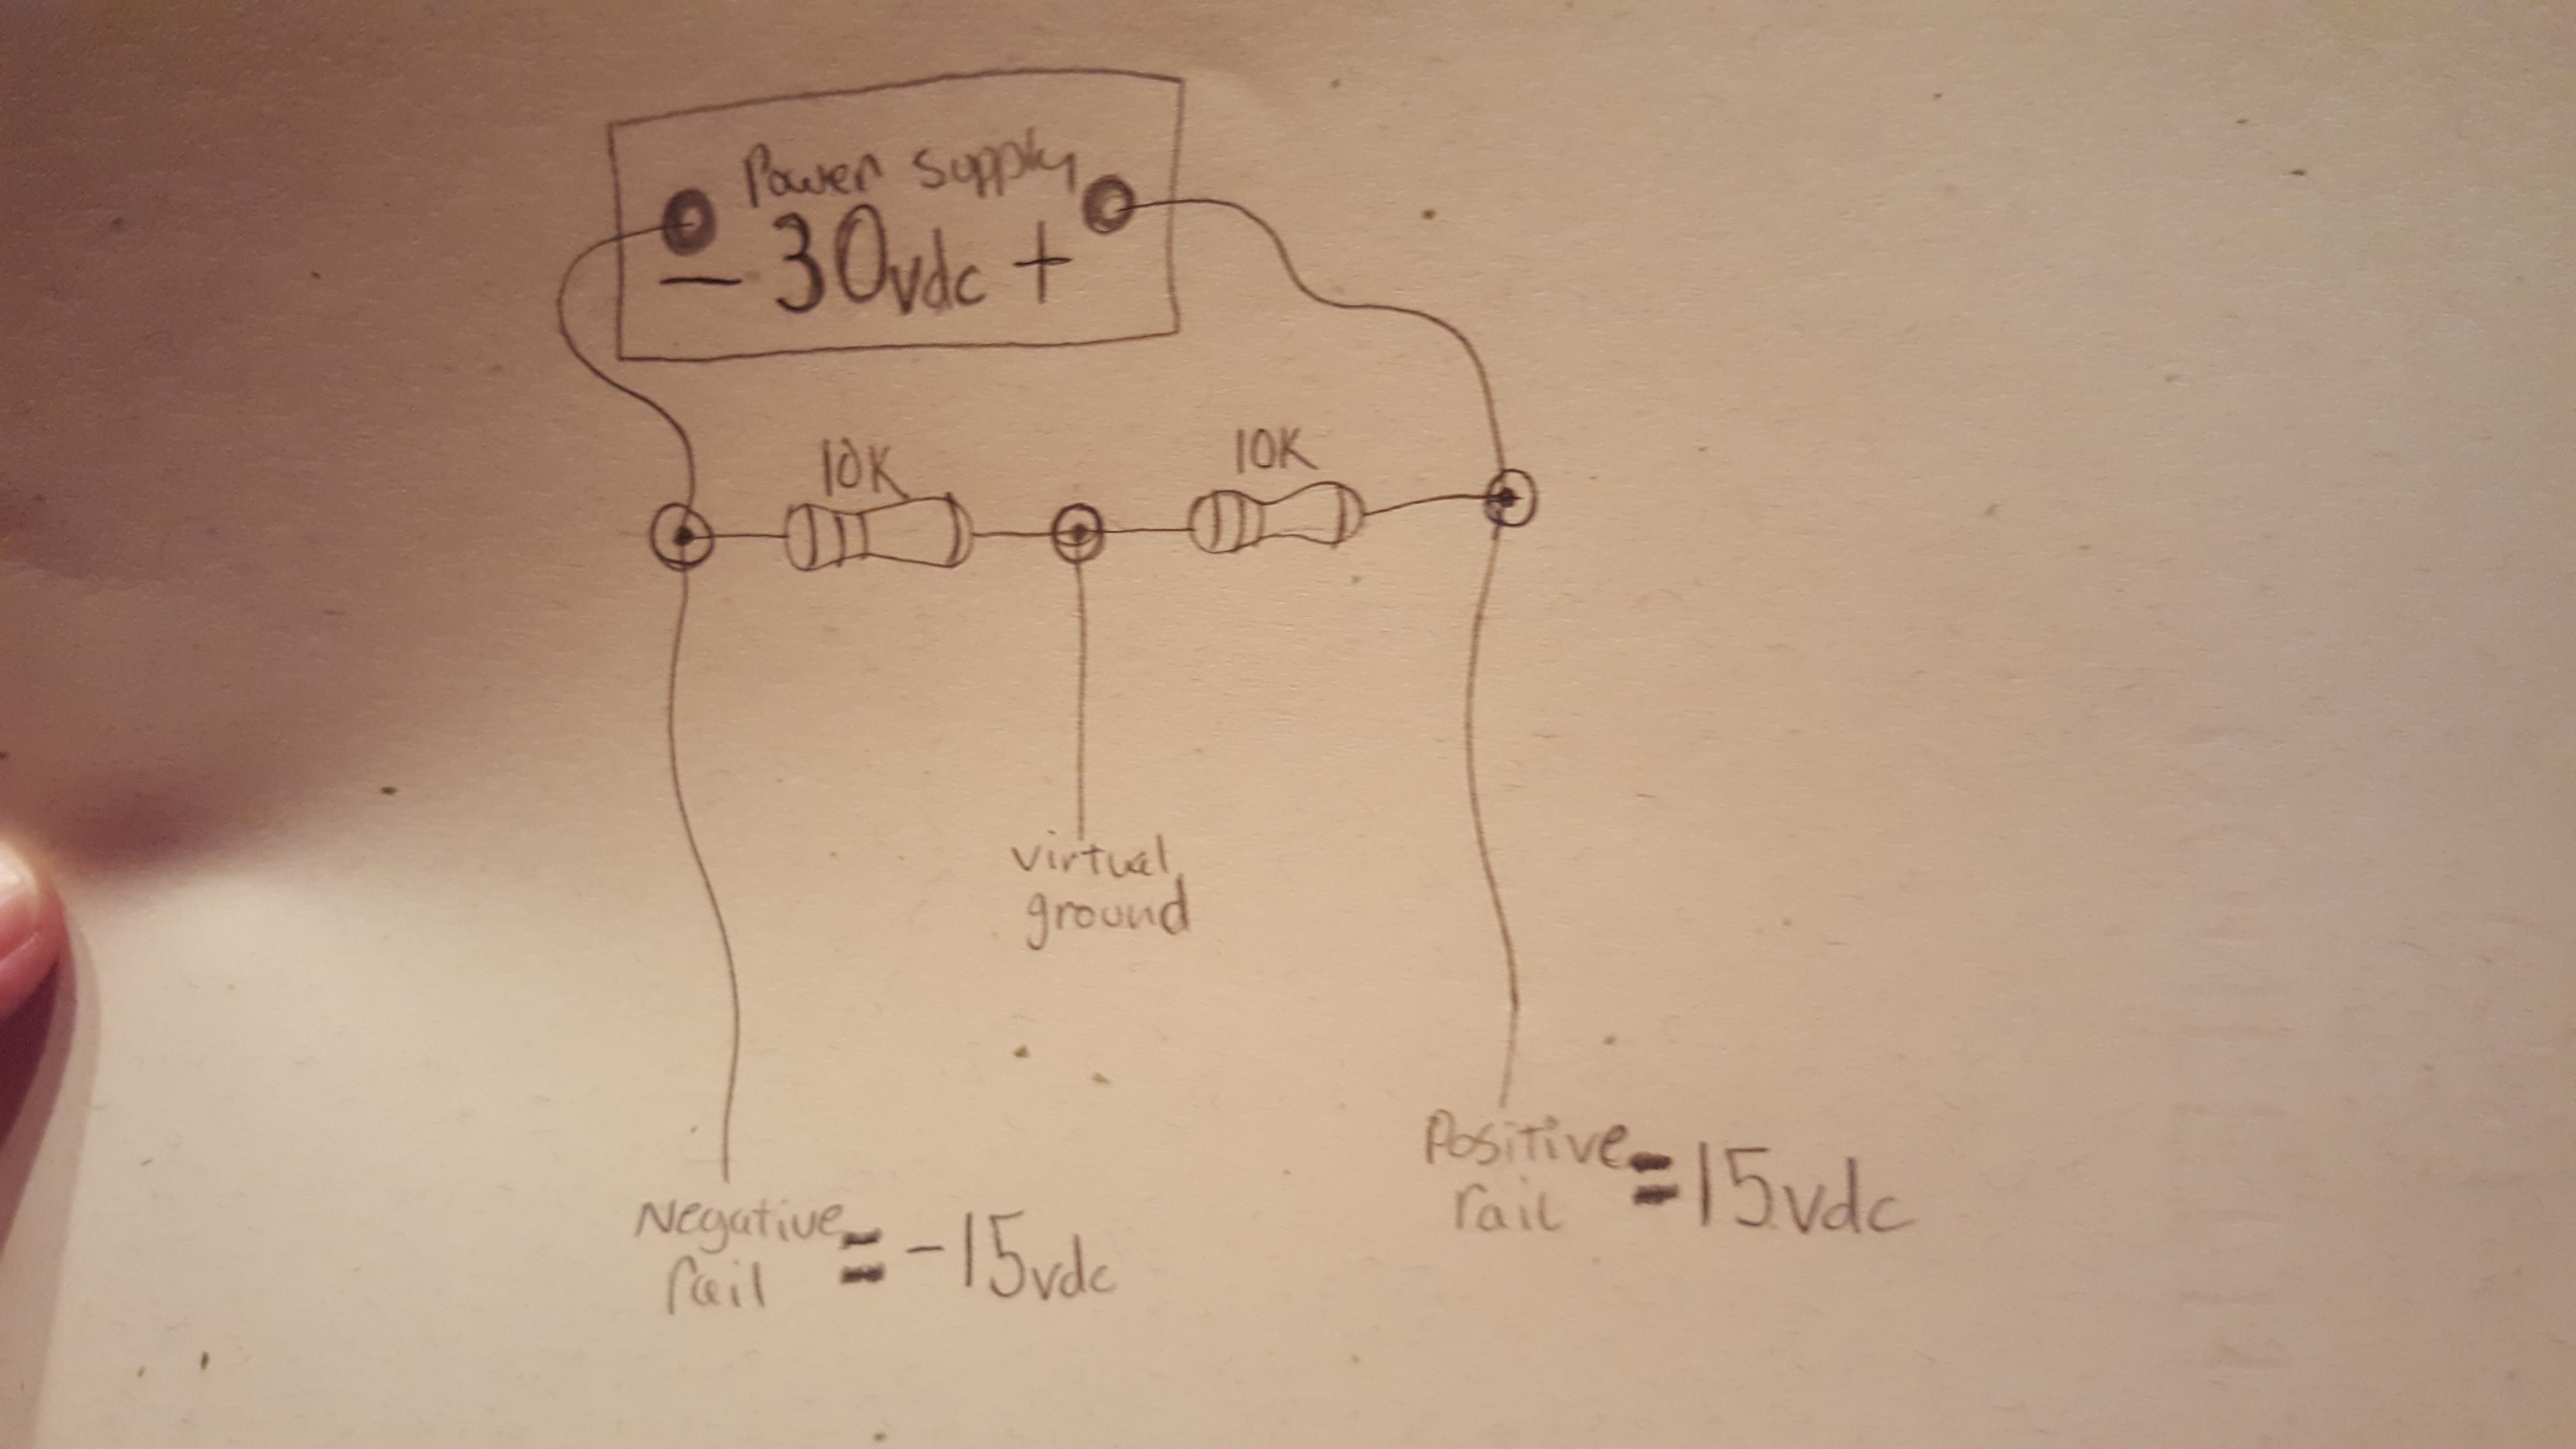 Power supply
- 30vdc +
10K
10K
virtual
ground
Positive
rail = 15vdc
Negative
rail = -15vdc